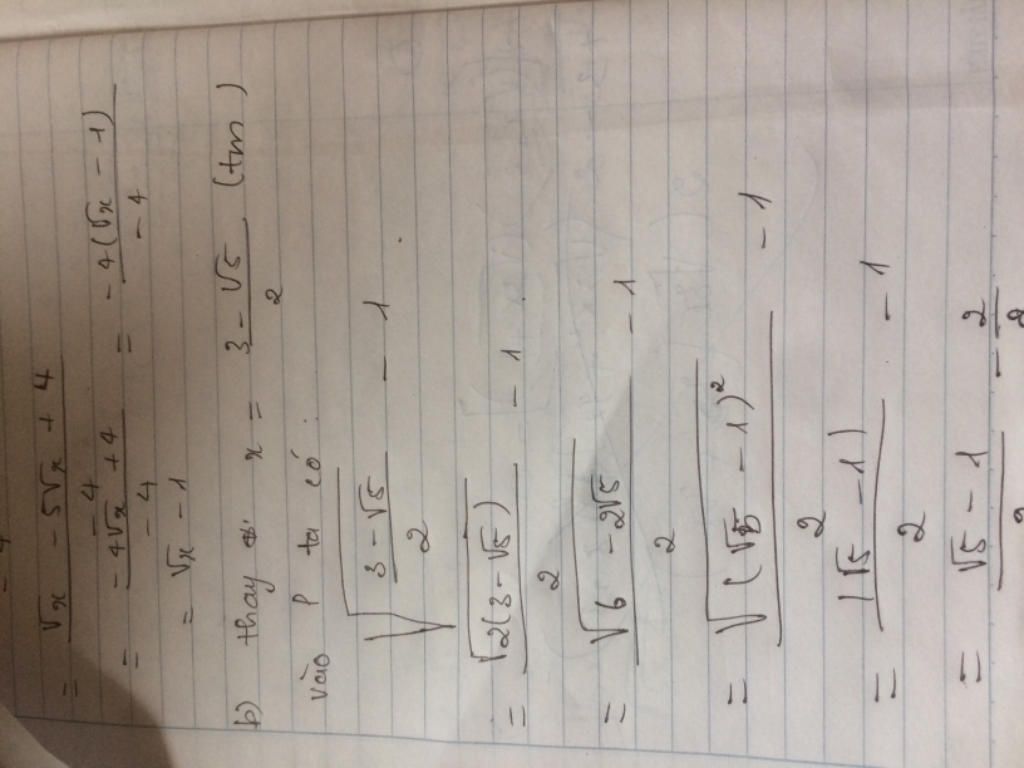 = (√x - 5√x + 4)/(-4)
= (-4√x + 4)/(-4) = (-4(√x - 1))/(-4)
= √x - 1
b) thay x = (3 - √5)/2 (tm)
vào P ta có:
√((3 - √5)/2) - 1
= √(2(3 - √5))/2 - 1
= √(6 - 2√5)/2 - 1
= √((√5 - 1)²)/2 - 1
= |√5 - 1|/2 - 1
= (√5 - 1)/2 - 2/2